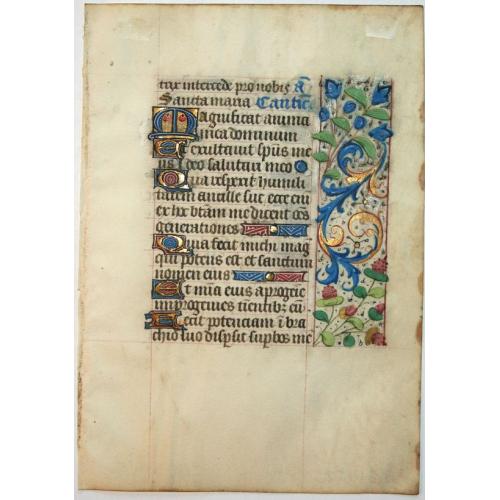 trix intercede pro nobis A
Sancta maria Cantic
Magnificat anima
mea dominum
Et exultauit spūs me
us i deo salutari meo
Quia respexit humili
tatem ancille sue ecce eni
ex hc btam me dicent oēs
generationes
Quia fecit michi mag
qui potens est et sanctum
nomen eius
Et mīa eius a progeie
in progenies timentibz eū
Fecit potenciam ī bra
chio suo dispsit supbos me